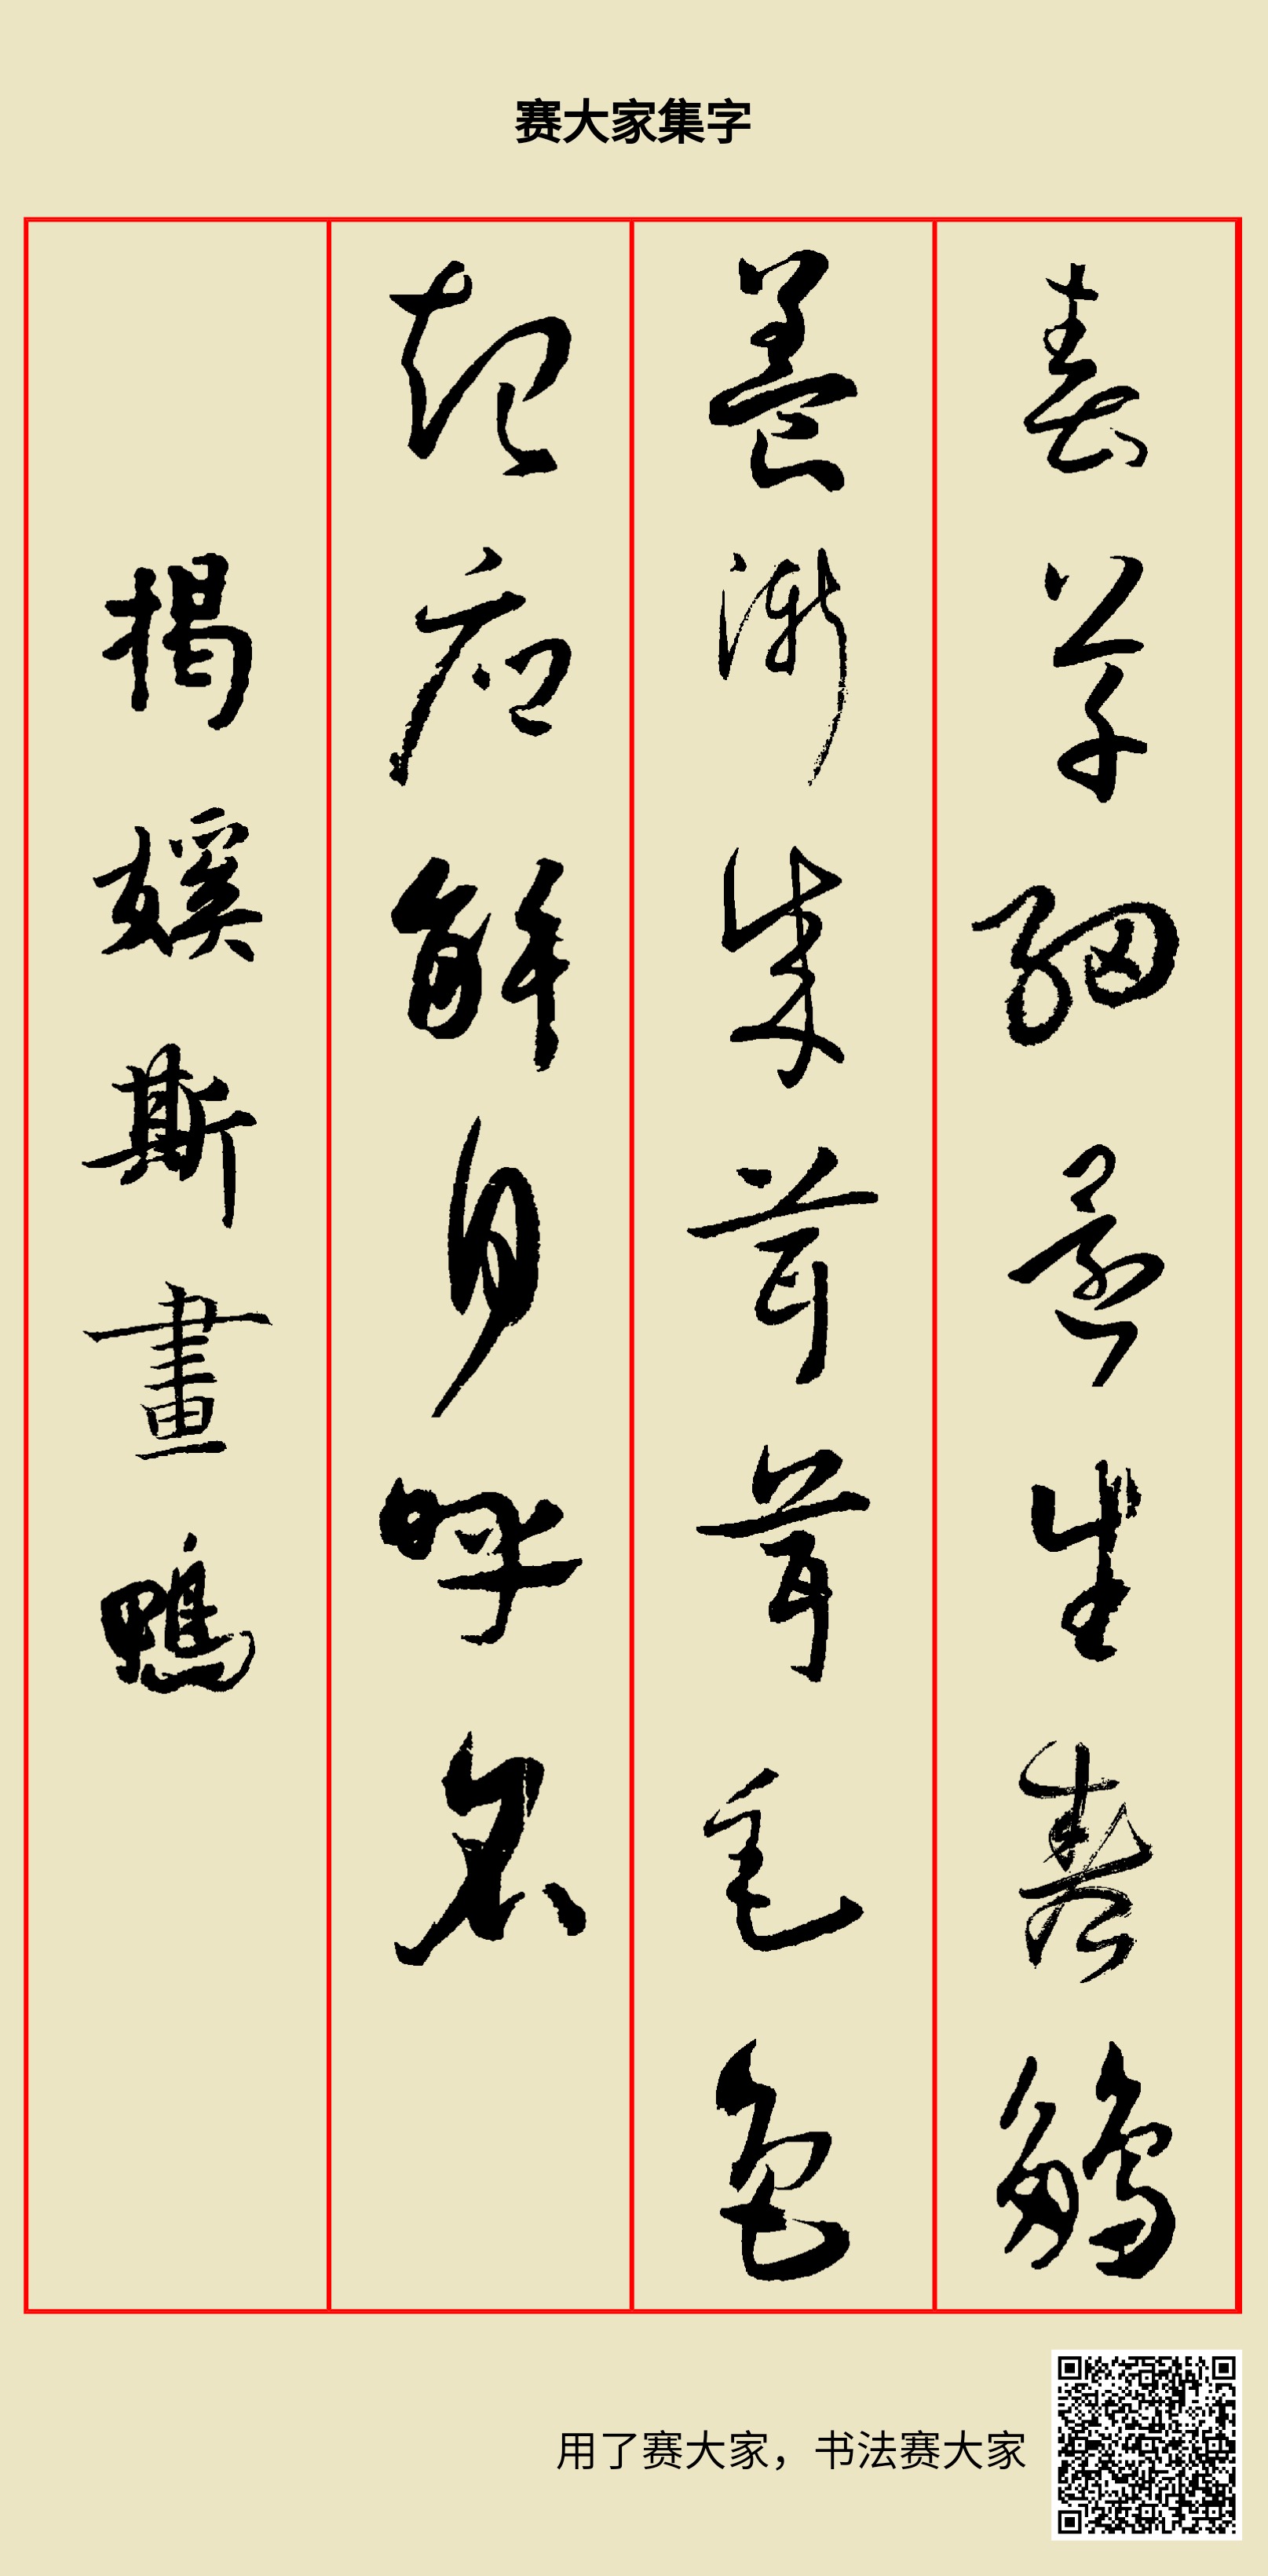 赛大家集字
春草細還生春鶵
養漸成茸茸毛色
起應解自呼名
揭㜎斯畫鴨
用了赛大家，书法赛大家